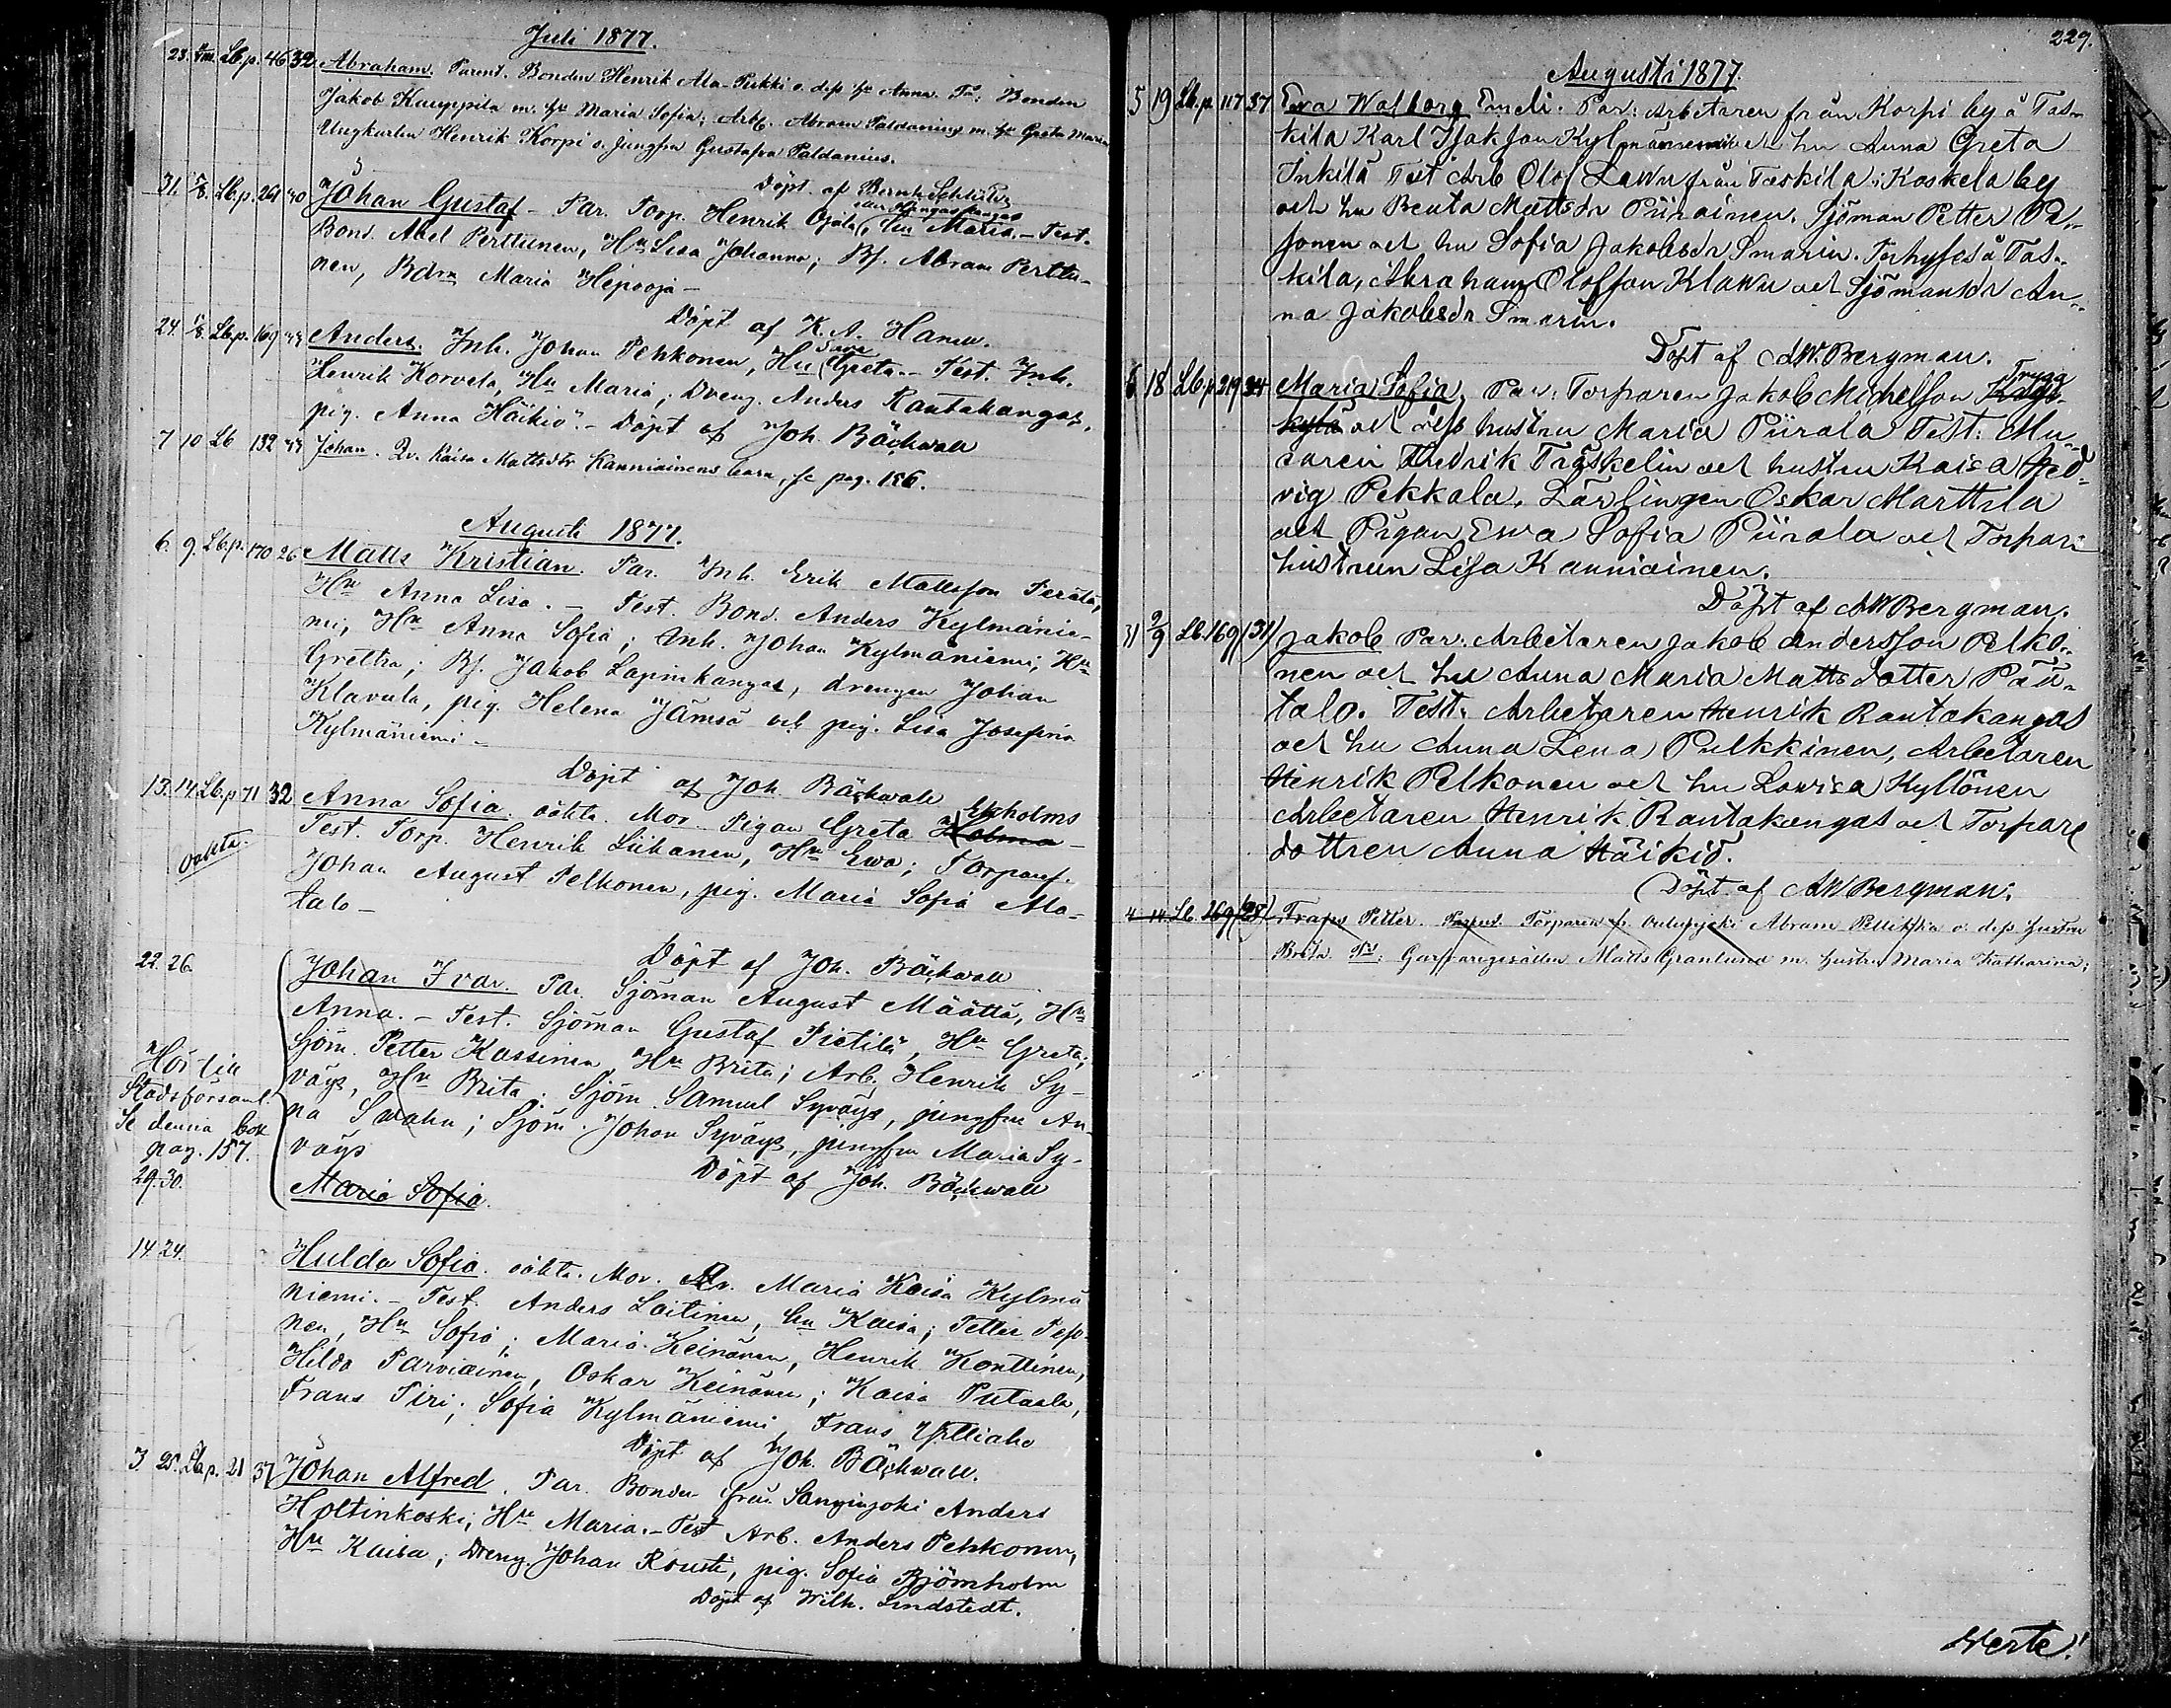 Juli 1877.
23. Lb.p. 46 32 Abraham. Parent. Bonden Henrik Ala-Pukki o. dess hu Anna. Bonden
Jakob Kauppila m. hu Maria Sofia; Arb. Abram Paldanius m. hu Greta Maria
Ungkarlen Henrik Korpi o. jungfru Gustafva Paldanius.
Döpt af
31. 5/8. Lb.p. 261 40 Johan Gustaf – Par. Torp. Henrik Ojala, hu Maria. – Test.
Bond. Abel Perttunen, Hu Lisa Johanna; Bs. Abram Perttu-
nen, Bdrn Maria Hepooja –
Döpt af K. A. Hanen.
24. Lb.p. 169 Anders. Inh. Johan Pehkonen, Hu Greta. – Test. Inh.
Henrik Korvela, Hu Maria; Dreng. Anders Rautakangas,
pig. Anna Häikiö. – Döpt af Joh. Bäckwall
7 10 Lb 132 Johan. Qv. Kaisa Mattsdtr Kanniainens barn, se pag. 186.
Augusti 1877.
6. 9. Lb.p. 170 26 Matts Kristian. Par. Inh. Erik Mattsson Perätä,
Hu Anna Lisa. – Test. Bond. Anders Kylmänie-
mi, Hu Anna Sofia; Inh. Johan Kylmäniemi, Hu
Gretha; Bs. Jakob Lapinkangas, drengen Johan
Klavula, pig. Helena Jämsä och pig. Lisa Josefina
Kylmäniemi –
Döpt af Joh. Bäckwall
13. 14. Lb.p. 71 32 Anna Sofia. oäkta. Mor. Pigan Greta Holma Ekholms
Test. Torp. Henrik Liikanen, Hu Ewa; Torpares.
oäkta. Johan August Pelkonen, pig. Maria Sofia Ala-
talo –
Döpt af Joh. Bäckwall
22. 26. Johan Ivar. Par. Sjöman August Määttä, Hu
Anna. – Test. Sjöman Gustaf Pietilä, Hu Greta;
Sjöm. Petter Kassinen, Hu Brita; Arb. Henrik Sy-
Hör till väys, Hu Brita; Sjöm. Samuel Syväys, jungfru An-
Stadsförsaml. na Swahn; Sjöm. Johan Syväys, jungfru Maria Sy-
Se denna bok väys
pag. 157. Döpt af Joh. Bäckwall
29. 30. Maria Sofia.
14. 24. Hulda Sofia. oäkta. Mor. Qv. Maria Kaisa Kylmä
niemi. – Test. Anders Laitinen, hu Kaisa; Petter Pepo-
nen, Hu Sofia; Maria Keinänen, Henrik Konttinen,
Hilda Parviainen, Oskar Keinänen; Kaisa Putaala,
Frans Piri; Sofia Kylmäniemi, Frans Ylliaho
Döpt af Joh. Bäckwall.
3. 25. Lb.p. 21 37 Johan Alfred. Par. Bonden från Sanginjoki Anders
Holtinkoski, Hu Maria. – Test Arb. Anders Pehkonen,
Hu Kaisa; Dreng. Johan Rousti, pig. Sofia Björnholm
Döpt af Wilh. Lindstedt.
229.
Augusti 1877.
5 19 Lb.p. 117 37 Ewa Walborg Emeli. Par: Arbetaren från Korpi by å Tas-
kila Karl Isaksson Kylmäniemi och hu Anna Greta
Inkilä Test Arb Olof Lawu från Taskila i Koskela by
och hu Beata Mattsdr Piirainen. Sjöman Petter Pe-
sonen och hu Sofia Jakobsdr Smarin. Torhyses å Tas-
kila, Abraham Olofsson Klawu och Sjömansdr An-
na Jakobsdr Smarin.
Döpt af AW. Bergman.
6 18 Lb p 219 34 Maria Sofia, Par: Torparen Jakob Michelsson
och dess hustru Maria Piirala Test: Mu-
raren Fredrik Träskelin och hustru Kaisa Hed-
vig Pekkala, Lärlingen Oskar Marttila
och Pigan Ewa Sofia Piirala och Torpare
hustrun Lisa Kanniainen.
Döpt af AW Bergman.
31 2/9 Lb 169 (31) Jakob Par: Arbetaren Jakob Andersson Pelko-
nen och hu Anna Maria Matts dotter Pää-
talo. Test: Arbetaren Henrik Rautakangas
och hu Anna Lena Pulkkinen, Arbetaren
Henrik Pelkonen och hu Lowisa Kyllönen
Arbetaren Henrik Rautakangas och Torpare
dottren Anna Häikiö.
Döpt af AW Bergman.
4 14 Lb 269 (28) Frans Petter. Torparen fr. Abram o. dess hustru
Brita. Garfvaregesällen Matts Granlund m. hustru Maria Katharina;
Verte!